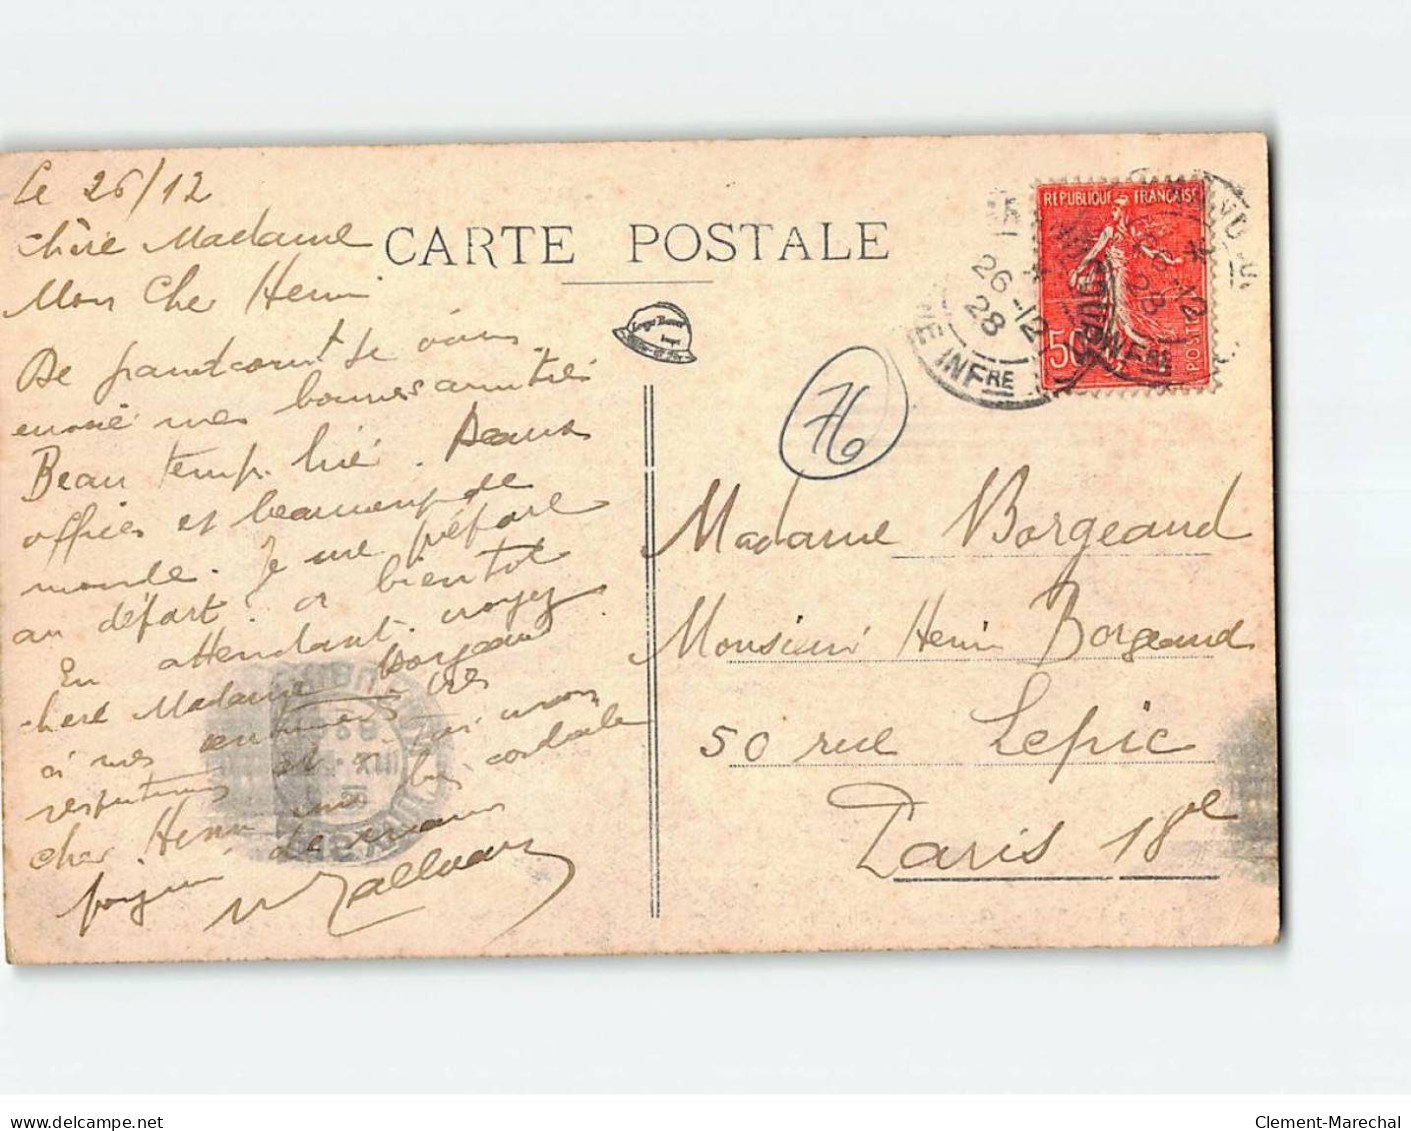 Le 26/12
Chère Madame
Mon Cher Henri
De je vous
envoie mes bonnes amitiés
Beau temp. Beaux
offices et beaucoup de
monde. Je me prépare
au départ. a bientôt
En attendant. croyez
chere Madame Borgeaud
à mes sentiments très
respectueux et a toi mon
cher Henri ma cordiale
CARTE POSTALE
REPUBLIQUE FRANÇAISE
50
POSTES
26 -12
28
NE INFRE
76
Madame Borgeaud
Monsieur Henri Borgeaud
50 rue Lepic
Paris 18e
www.delcampe.net
Clement-Marechal